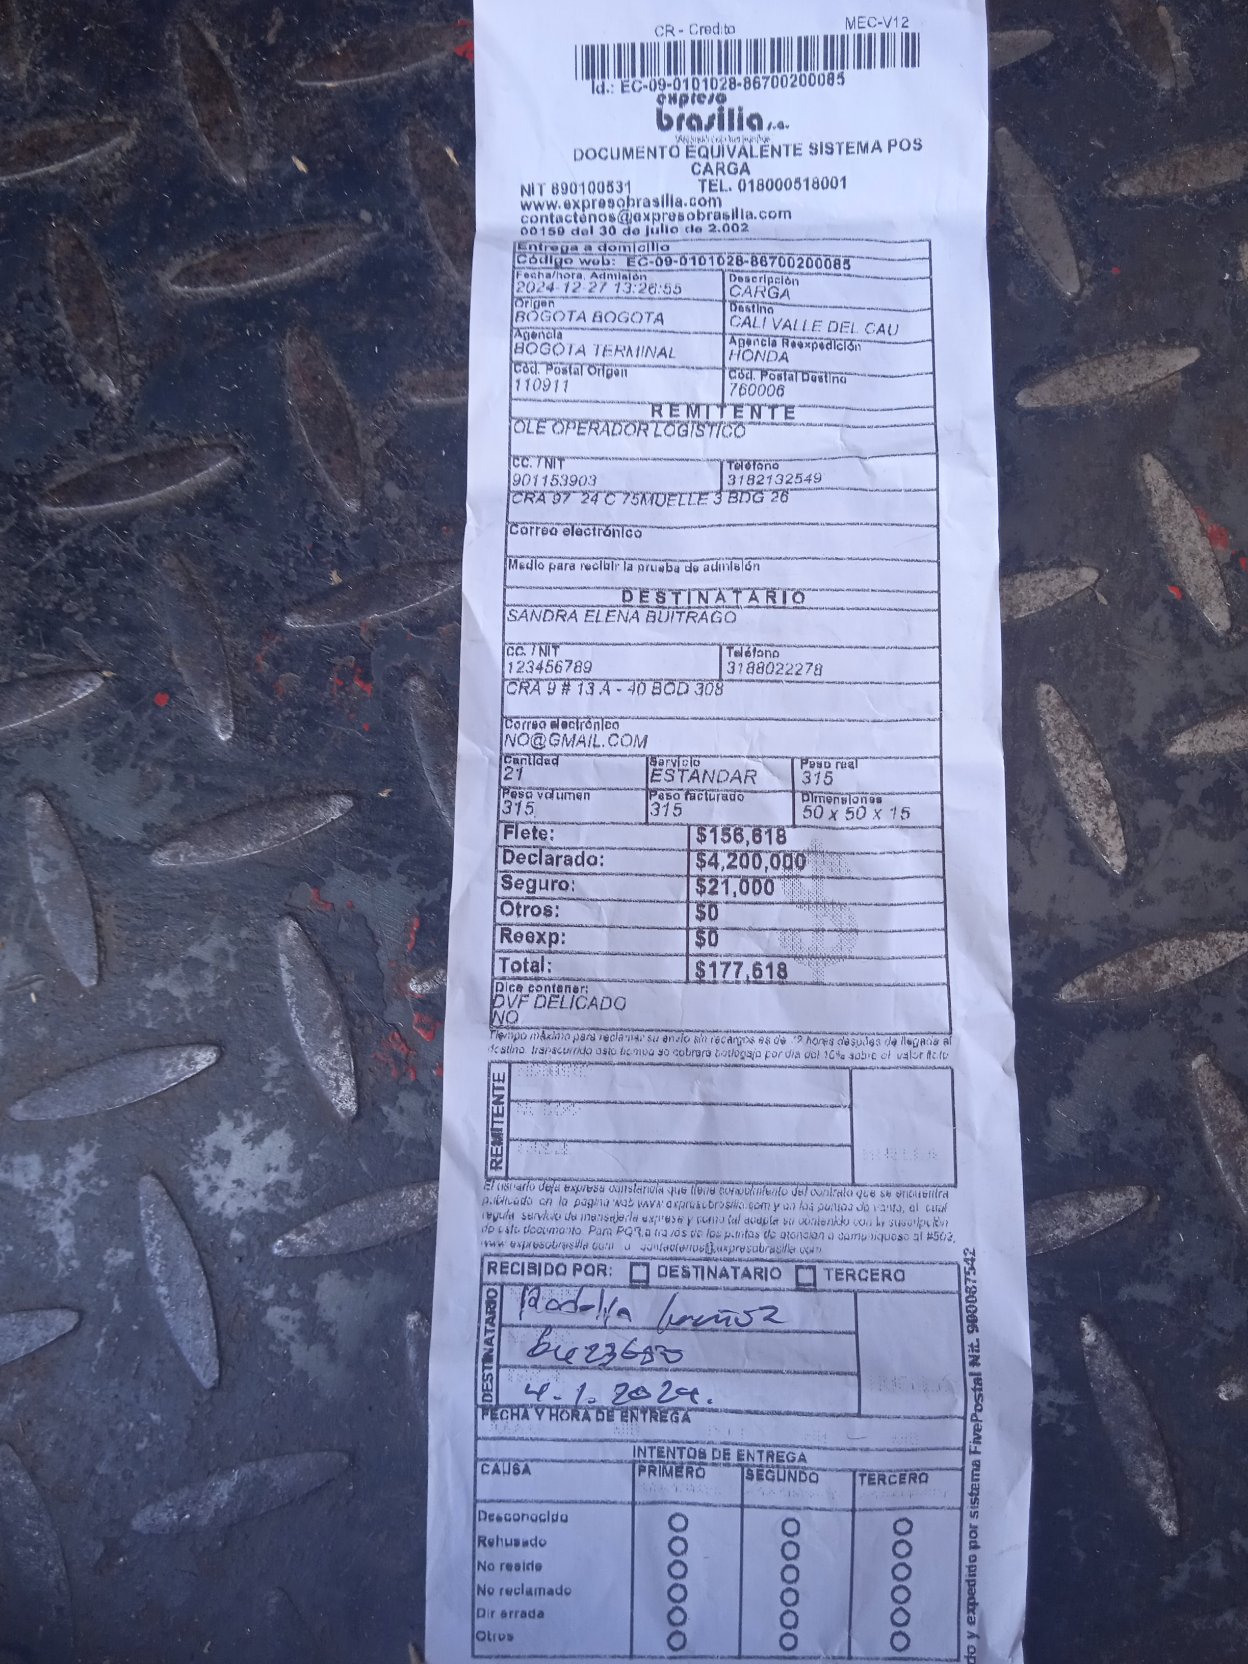 CR - Credito MEC-V12
Id.: EC-09-0101028-86700200085
expreso
brasilia s.a.
DOCUMENTO EQUIVALENTE SISTEMA POS
CARGA
NIT 890100531 TEL. 018000518001
www.expresobrasilia.com
contactenos@expresobrasilia.com
00159 del 30 de julio de 2.002
Entrega a domicilio
Código web: EC-09-0101028-86700200085
Fecha/hora. Admisión Descripción
2024-12-27 13:26:55 CARGA
Origen Destino
BOGOTA BOGOTA CALI VALLE DEL CAU
Agencia Agencia Reexpedición
BOGOTA TERMINAL HONDA
Cód. Postal Origen Cód. Postal Destino
110911 760006
REMITENTE
OLE OPERADOR LOGISTICO
CC. / NIT Teléfono
901153903 3182132549
CRA 97 24 C 75MUELLE 3 BDG 26
Correo electrónico
Medio para recibir la prueba de admisión
DESTINATARIO
SANDRA ELENA BUITRAGO
CC. / NIT Teléfono
123456789 3188022278
CRA 9 # 13 A - 40 BOD 308
Correo electrónico
NO@GMAIL.COM
Cantidad Servicio Peso real
21 ESTANDAR 315
Peso volumen Peso facturado Dimensiones
315 315 50 x 50 x 15
Flete: $156,618
Declarado: $4,200,000
Seguro: $21,000
Otros: $0
Reexp: $0
Total: $177,618
Dice contener:
DVF DELICADO
NO
Tiempo máximo para reclamar su envío sin recargos es de 72 horas después de llegada al
destino, transcurrido este tiempo se cobrará bodegaje por día del 10% sobre el valor flete
REMITENTE
El usuario deja expresa constancia que tiene conocimiento del contrato que se encuentra
publicado en la página web www.expresobrasilia.com y en los puntos de venta, el cual
regula servicio de mensajería expresa y como tal acepta su contenido con la suscripción
de este documento. Para PQR a través de los puntos de atención o comuníquese al #502,
www.expresobrasilia.com o contactenos@expresobrasilia.com
RECIBIDO POR: DESTINATARIO TERCERO
DESTINATARIO
4.1.2024.
FECHA Y HORA DE ENTREGA
INTENTOS DE ENTREGA
CAUSA PRIMERO SEGUNDO TERCERO
Desconocido
Rehusado
No reside
No reclamado
Dir errada
Otros
do y expedido por sistema FivePostal Nit. 900087542